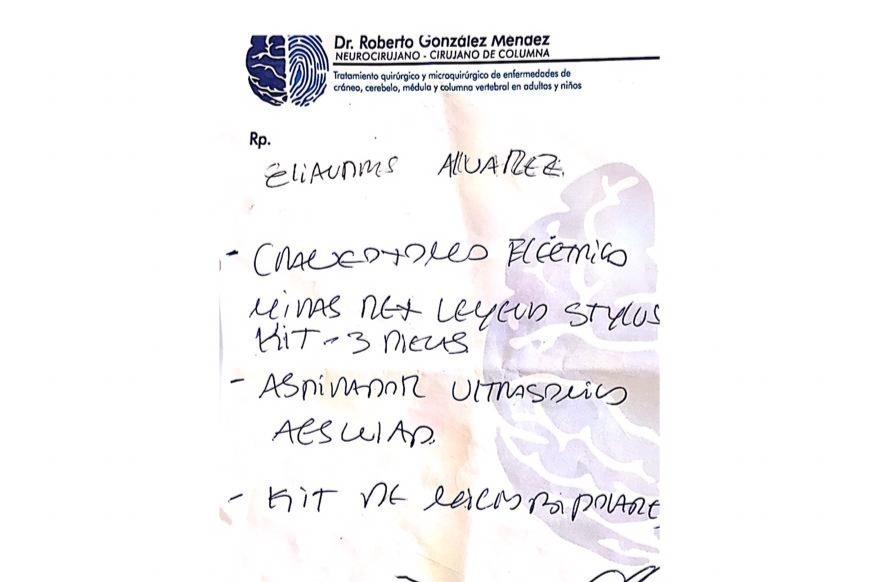 Dr. Roberto González Mendez
NEUROCIRUJANO - CIRUJANO DE COLUMNA
Tratamiento quirúrgico y microquirúrgico de enfermedades de
cráneo, cerebelo, médula y columna vertebral en adultos y niños
Rp.
ALVAREZ.
- ELÉCTRICO
MIDAS REX LEGEND STYLUS
KIT - 3
- ASPIRADOR ULTRASONICO
AESCULAP.
- KIT DE BIPOLARE